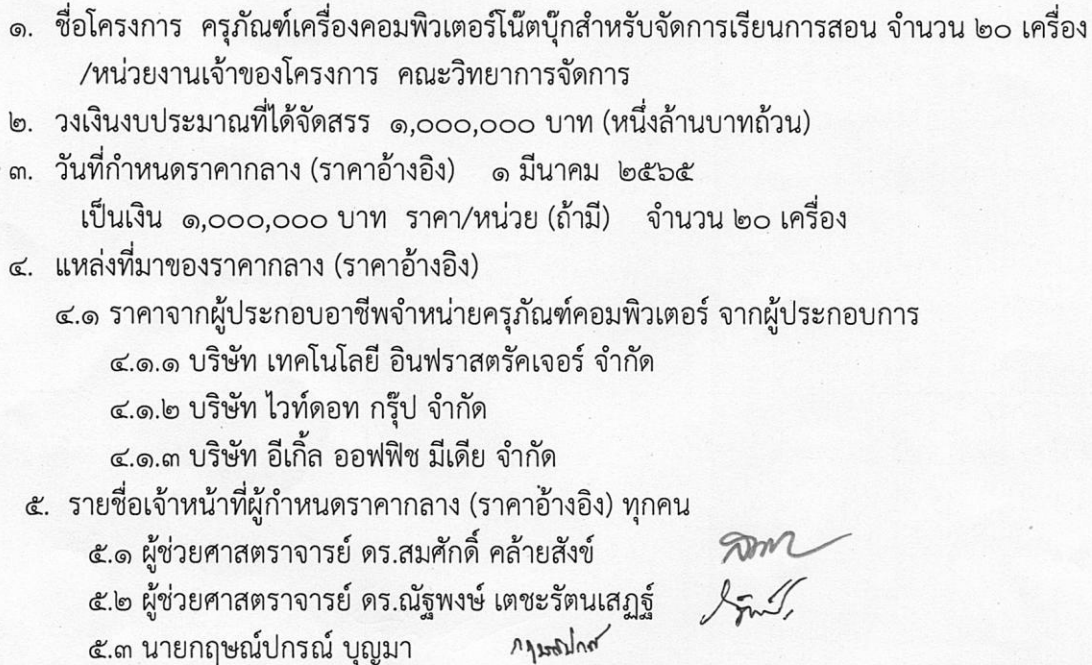 ๑. ชื่อโครงการ ครุภัณฑ์เครื่องคอมพิวเตอร์โน๊ตบุ๊กสำหรับจัดการเรียนการสอน จำนวน ๒๐ เครื่อง
/หน่วยงานเจ้าของโครงการ คณะวิทยาการจัดการ
๒. วงเงินงบประมาณที่ได้จัดสรร ๑,๐๐๐,๐๐๐ บาท (หนึ่งล้านบาทถ้วน)
๓. วันที่กำหนดราคากลาง (ราคาอ้างอิง) ๑ มีนาคม ๒๕๖๕
เป็นเงิน ๑,๐๐๐,๐๐๐ บาท ราคา/หน่วย (ถ้ามี) จำนวน ๒๐ เครื่อง
๔. แหล่งที่มาของราคากลาง (ราคาอ้างอิง)
๔.๑ ราคาจากผู้ประกอบอาชีพจำหน่ายครุภัณฑ์คอมพิวเตอร์ จากผู้ประกอบการ
๔.๑.๑ บริษัท เทคโนโลยี อินฟราสตรัคเจอร์ จำกัด
๔.๑.๒ บริษัท ไวท์ดอท กรุ๊ป จำกัด
๔.๑.๓ บริษัท อีเกิ้ล ออฟฟิช มีเดีย จำกัด
๕. รายชื่อเจ้าหน้าที่ผู้กำหนดราคากลาง (ราคาอ้างอิง) ทุกคน
๕.๑ ผู้ช่วยศาสตราจารย์ ดร.สมศักดิ์ คล้ายสังข์
๕.๒ ผู้ช่วยศาสตราจารย์ ดร.ณัฐพงษ์ เตชะรัตนเสฏฐ์
๕.๓ นายกฤษณ์ปกรณ์ บุญมา